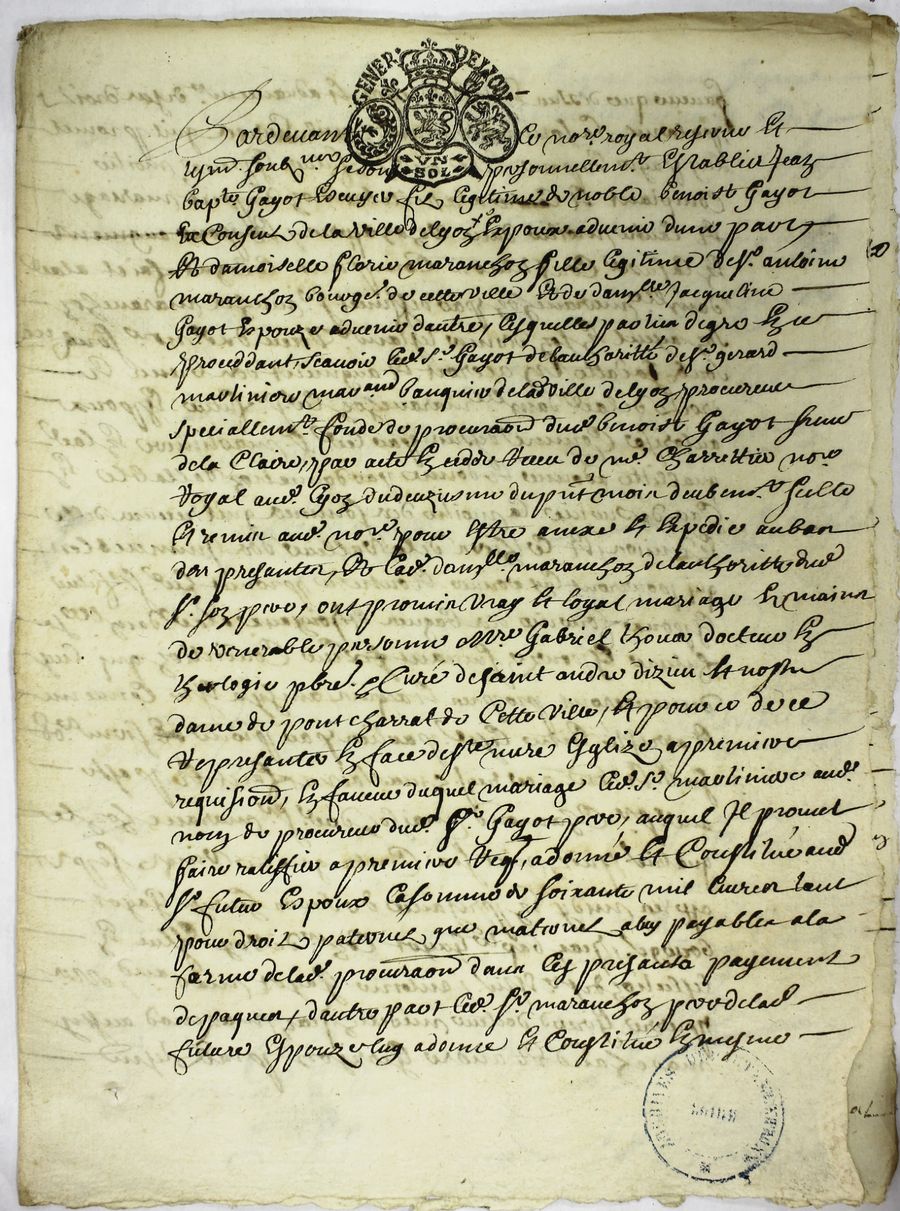 GENER. DE LYON
VN
SOL
Pardevant le nore. royal reservé Et
soubne. personnellemt. Establis Jean
bapte. Gayot Escuyer fils legitime de noble benoist Gayot
Ex Consul de la ville de lyon Espoux advenir dune part
Et damoiselle florie maranchon fille legitime de sr. antoine
maranchon bourgs. de cette ville Et de damlle. Jacqueline
Gayot Espouze advenir dautre, lesquelles parties degré En
proceddant, scavoir led. sr. Gayot de lauthoritté de sr. gerard
marliniere marand banquier de lad ville de lyon procureur
speciallemt. fondé de procuraon dud. benoist Gayot sieur
de la Claire, par acte receu de me. Charrettier nore.
Royal aud. lyon du deuziesme du pnt mois deubemt. scellé
Et remis aud. nore. pour Estre anexé Et Expedié au bas
des presantes, Et lad. damlle. maranchon de lauthoritté dud
sr. son pere, ont promis vray Et loyal mariage Es mains
de venerable personne Mre. Gabriel thoua docteur En
theologie pbre. Curé de saint andre dizieu Et nostre
dame de pont charrat de Cette ville, Et pour ce de ce
representer En face de ste mere Esglize a premiere
requision, En faveur duquel mariage led. sr. marliniere aud.
nom de procureur dud. sr. Gayot pere, auquel Il promet
faire ratiffier a premiere Reqn, a donné Et Constitué aud
sr. futur Espoux la somme de soixante mil livres tant
pour droits paternels que maternels a luy payables a la
forme de lad. procuraon dans les presants payement
de paques, dautre part led. sr. maranchon pere de lad.
future Espouze luy a donné Et Constitué En mesme
ARCHIVES